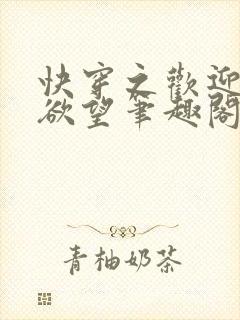 快穿之歡迎
欲望筆趣閣
青柚奶茶